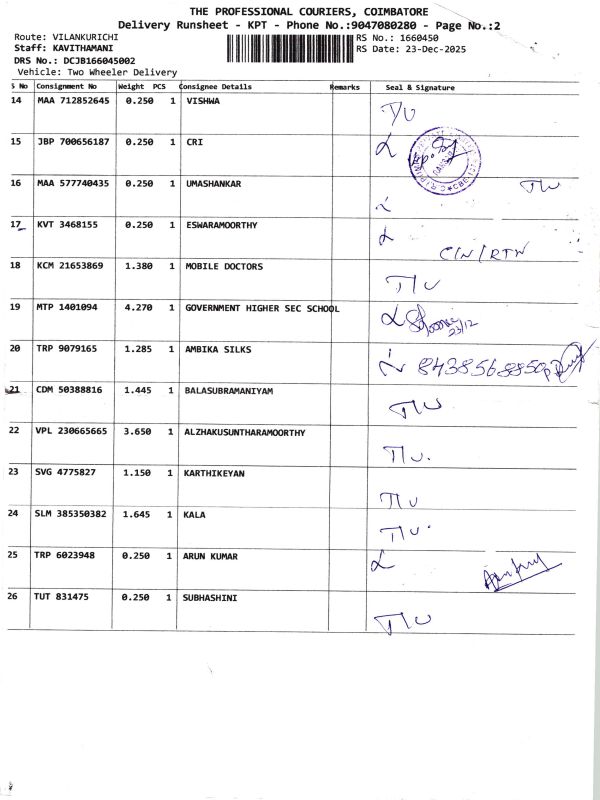 THE PROFESSIONAL COURIERS, COIMBATORE
Delivery Runsheet - KPT - Phone No.:9047080280 - Page No.:2
Route: VILANKURICHI
RS No.: 1660450
Staff: KAVITHAMANI
RS Date: 23-Dec-2025
DRS No.: DCJB166045002
Vehicle: Two Wheeler Delivery
S No Consignment No Weight PCS Consignee Details Remarks Seal & Signature
14 MAA 712852645 0.250 1 VISHWA T/U
15 JBP 700656187 0.250 1 CRI
16 MAA 577740435 0.250 1 UMASHANKAR
17 KVT 3468155 0.250 1 ESWARAMOORTHY C/N/RTN
18 KCM 21653869 1.380 1 MOBILE DOCTORS T/U
19 MTP 1401094 4.270 1 GOVERNMENT HIGHER SEC SCHOOL 23/12
20 TRP 9079165 1.285 1 AMBIKA SILKS 8438568850
21 CDM 50388816 1.445 1 BALASUBRAMANIYAM T/U
22 VPL 230665665 3.650 1 ALZHAKUSUNTHARAMOORTHY T/U.
23 SVG 4775827 1.150 1 KARTHIKEYAN T/U
24 SLM 385350382 1.645 1 KALA T/U.
25 TRP 6023948 0.250 1 ARUN KUMAR
26 TUT 831475 0.250 1 SUBHASHINI T/U